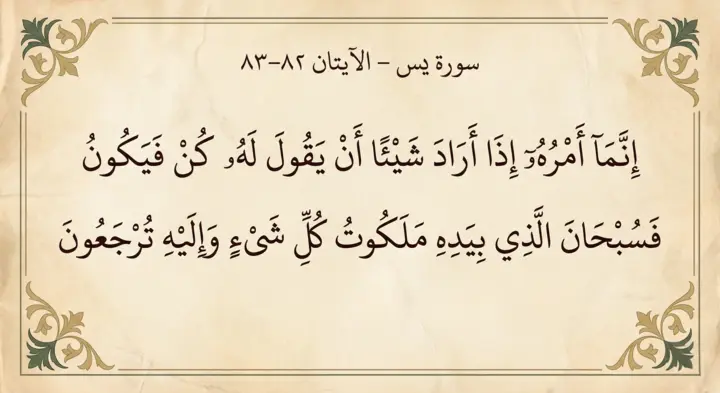 سورة يس – الآيتان ٨٢–٨٣
إِنَّمَآ أَمْرُهُۥٓ إِذَا أَرَادَ شَيْئًا أَنْ يَقُولَ لَهُۥ كُنْ فَيَكُونُ
فَسُبْحَانَ الَّذِي بِيَدِهِ مَلَكُوتُ كُلِّ شَىْءٍ وَإِلَيْهِ تُرْجَعُونَ